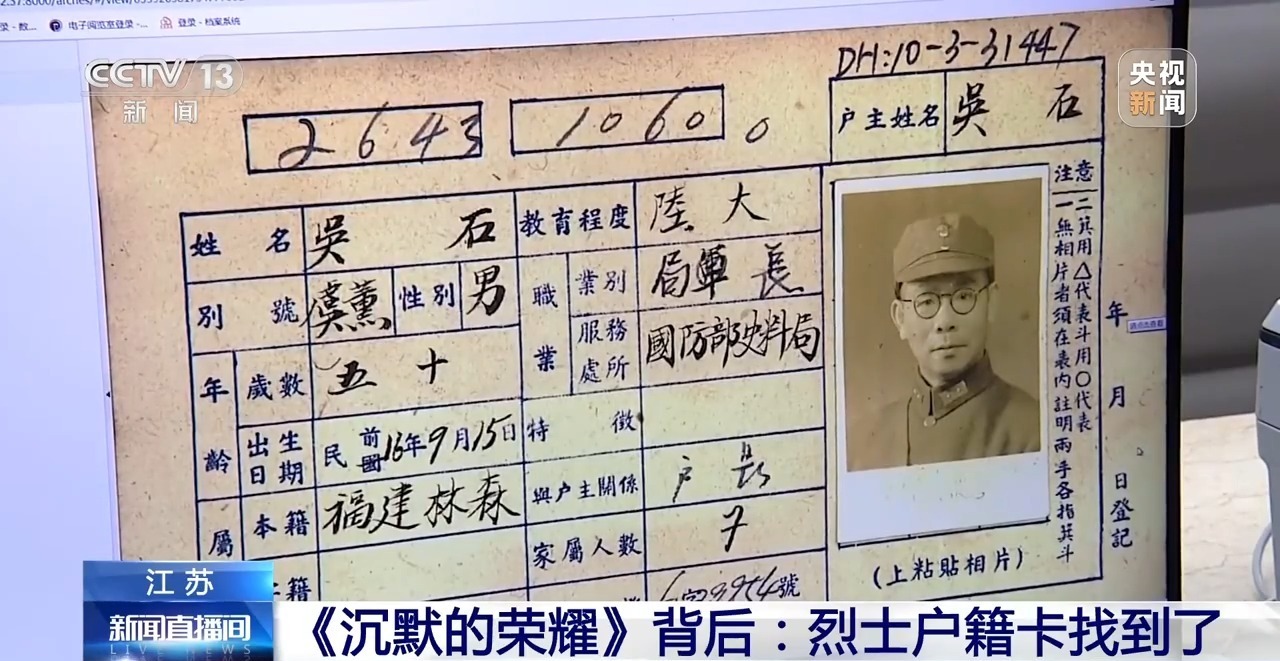 电子阅览室登录-...
登录 - 档案系统
CCTV 13
新闻
央视
新闻
DH:10-3-31447
2643
1060
0
户主姓名 吳石
姓名 吳石 教育程度 陸大
別號 虞薰 性別 男 職業 業別 局軍長
服務處所 國防部史料局
年齡 歲數 五十
出生日期 民前國16年9月15日 特徵
屬 本籍 福建林森 與户主關係 户長
家屬人數 7
籍
號
注意
一無相片者須在表內註明兩手各指箕斗
二箕用△代表斗用〇代表
年月日登記
(上粘貼相片)
江苏
新闻直播间
LIVE NEWS
《沉默的荣耀》背后：烈士户籍卡找到了